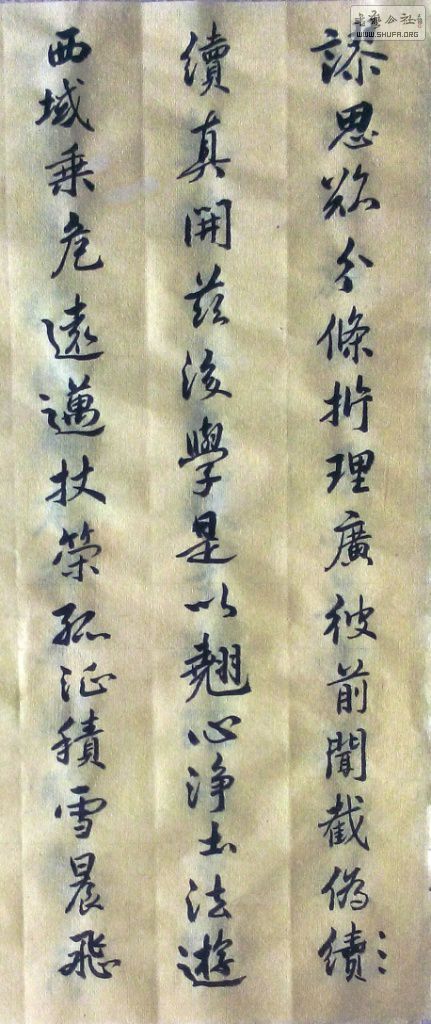 謬思欲分條析理廣彼前聞截偽續
續真開茲後學是以翹心浄土法遊
西域乗危遠邁杖策孤征積雪晨飛
书藝公社
WWW.SHUFA.ORG